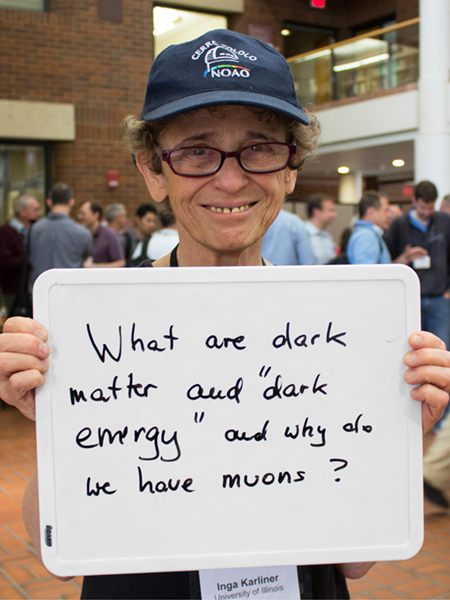 CERRO TOLOLO
NOAO
What are dark
matter and "dark
energy" and why do
we have muons?
Inga Karliner
University of Illinois